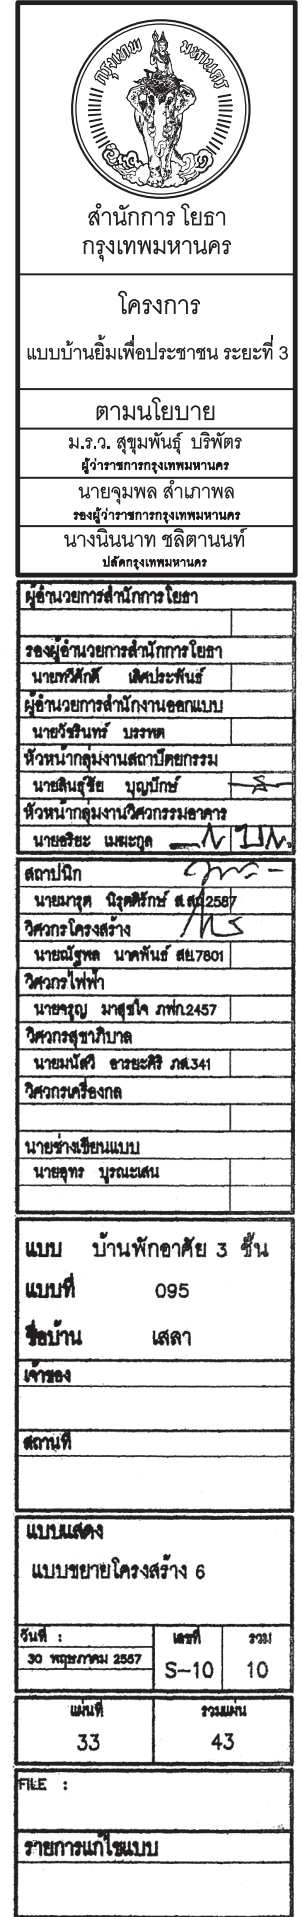 กรุงเทพ มหานคร
สำนักการ โยธา
กรุงเทพมหานคร
โครงการ
แบบบ้านยิ้มเพื่อประชาชน ระยะที่ 3
ตามนโยบาย
ม.ร.ว. สุขุมพันธุ์ บริพัตร
ผู้ว่าราชการกรุงเทพมหานคร
นายจุมพล สำเภาพล
รองผู้ว่าราชการกรุงเทพมหานคร
นางนินนาท ชลิตานนท์
ปลัดกรุงเทพมหานคร
ผู้อำนวยการสำนักการโยธา
รองผู้อำนวยการสำนักการโยธา
นายทวีศักดิ์ เลิศประพันธ์
ผู้อำนวยการสำนักงานออกแบบ
นายวัชรินทร์ บรรพต
หัวหน้ากลุ่มงานสถาปัตยกรรม
นายสินธุ์ชัย บุญปักษ์
หัวหน้ากลุ่มงานวิศวกรรมอาคาร
นายอริยะ เมฆะกูล
สถาปนิก
นายมารุต นิรุตติรักษ์ ส.สถ.2587
วิศวกรโครงสร้าง
นายณัฐพล นาคพันธ์ สย.7801
วิศวกรไฟฟ้า
นายจรูญ มาสุขใจ ภฟก.2457
วิศวกรสุขาภิบาล
นายมนัสวี อารยะศิริ ภส.341
วิศวกรเครื่องกล
นายช่างเขียนแบบ
นายอุทร บูรณะเสน
แบบ บ้านพักอาศัย 3 ชั้น
แบบที่ 095
ชื่อบ้าน เสลา
เจ้าของ
สถานที่
แบบแสดง
แบบขยายโครงสร้าง 6
วันที่ : เลขที่ รวม
30 พฤษภาคม 2557 S-10 10
แผ่นที่ รวมแผ่น
33 43
FILE :
รายการแก้ไขแบบ